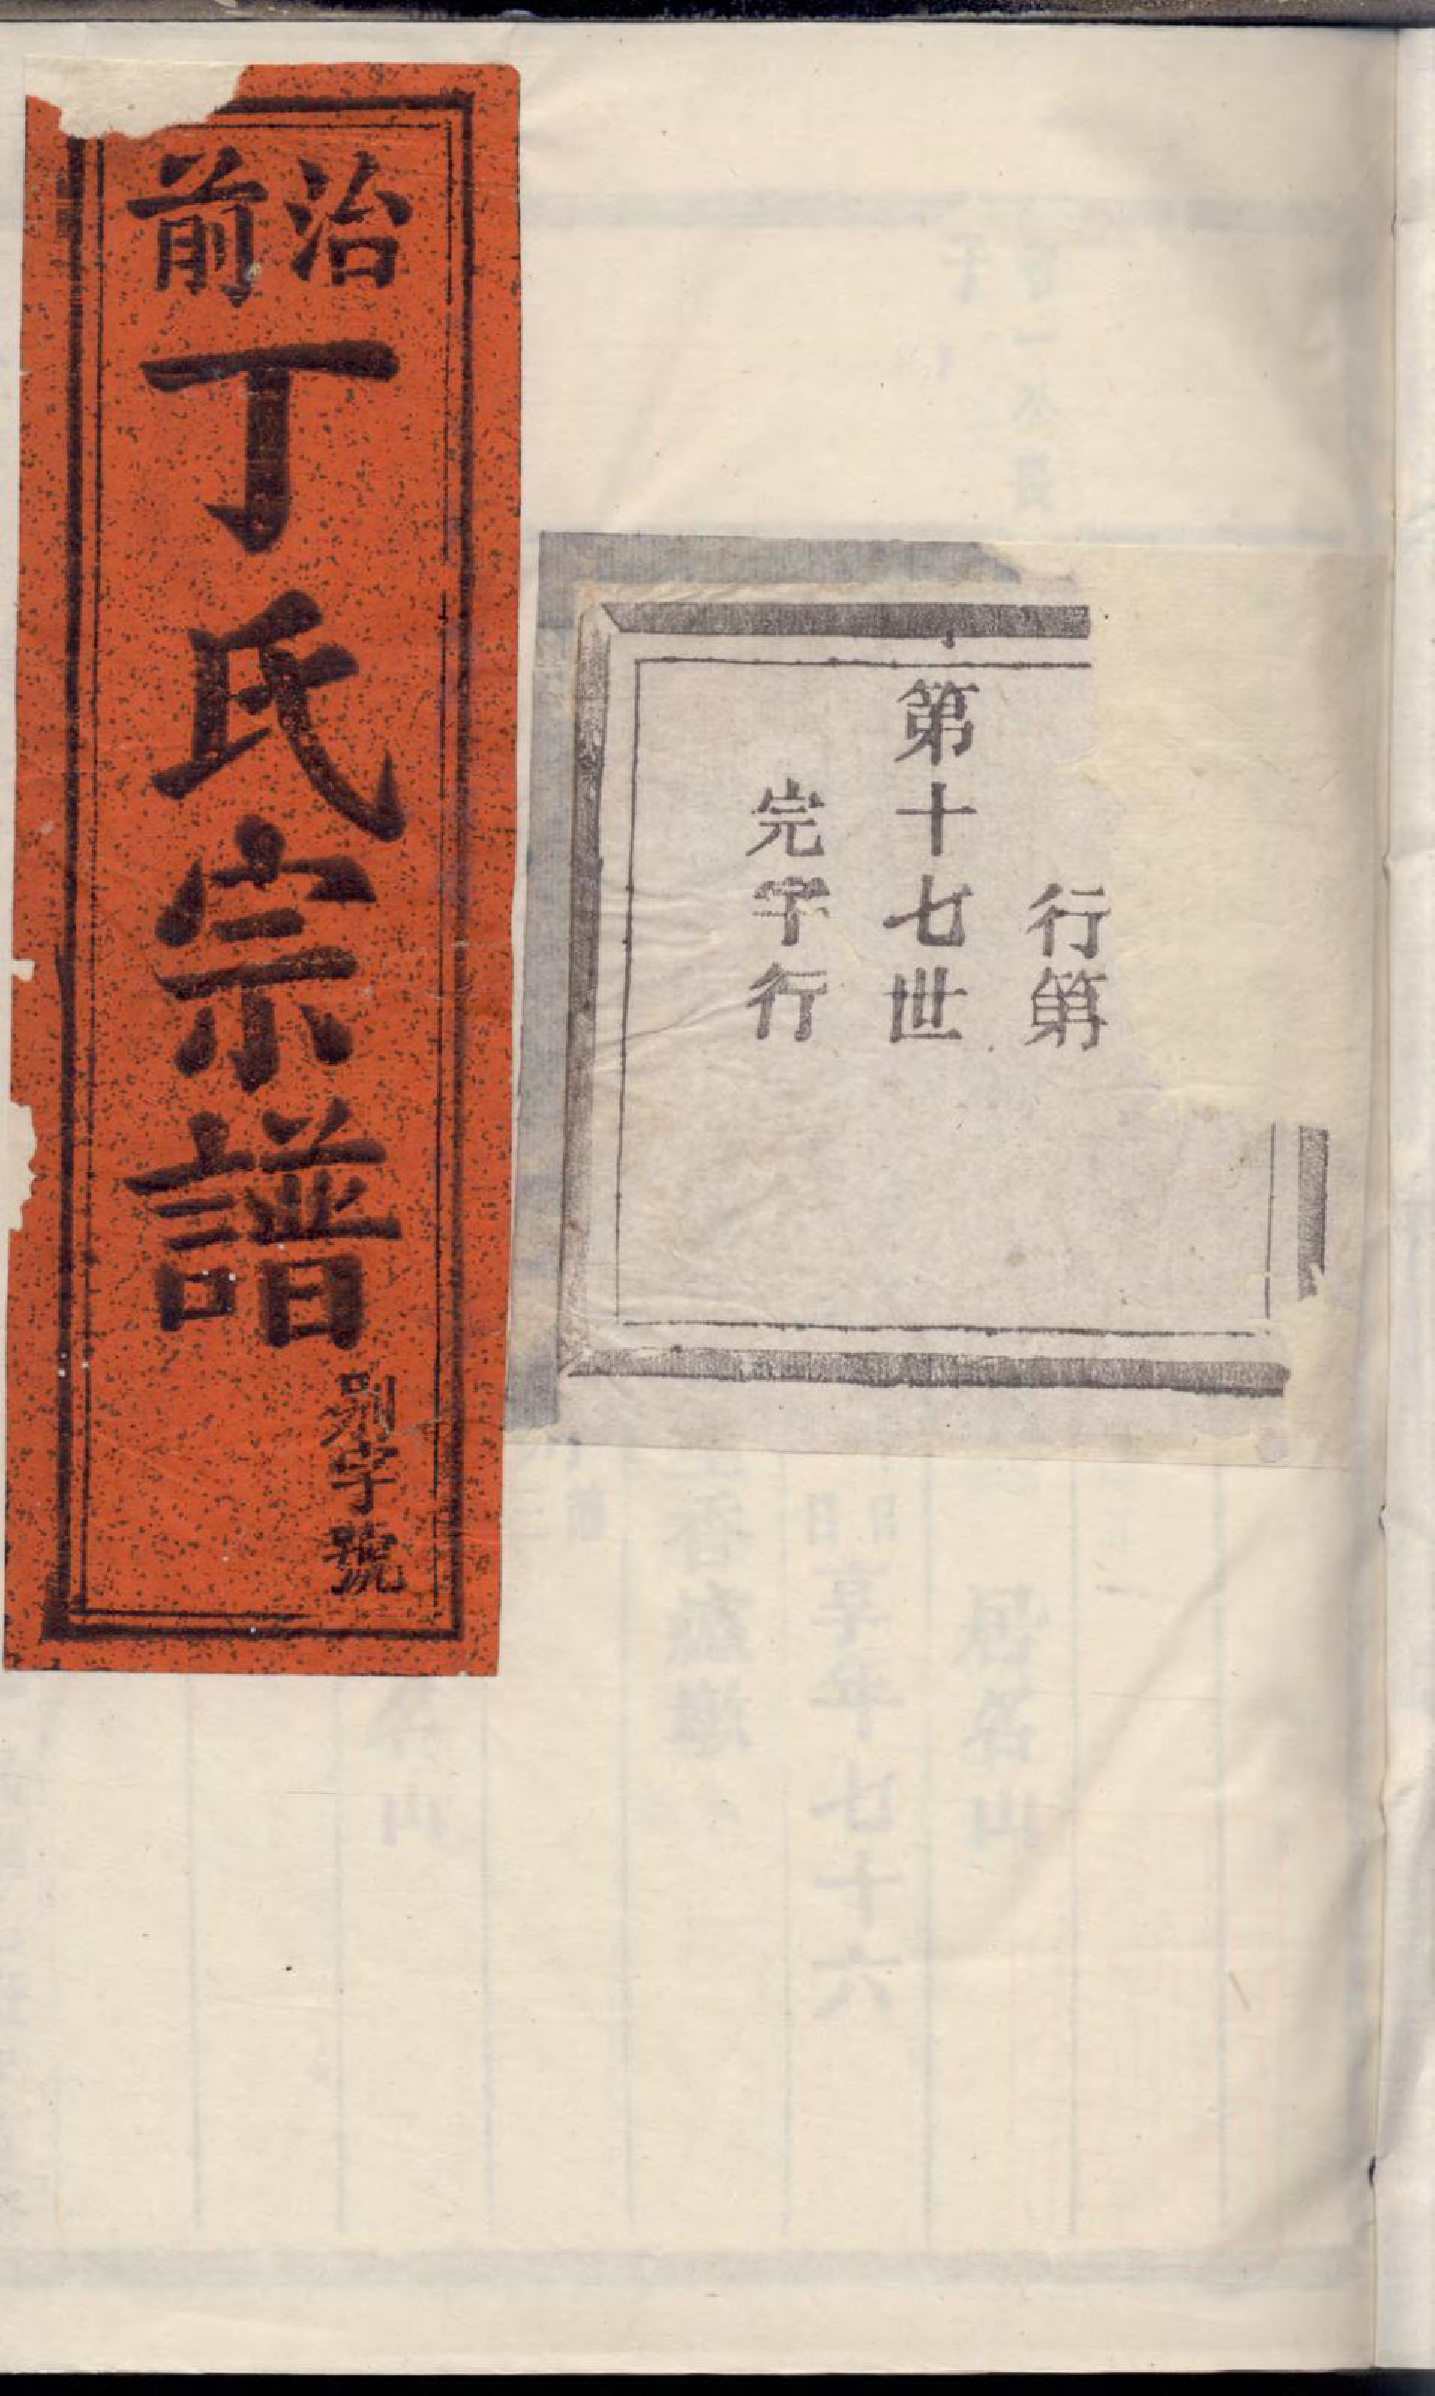 治前
丁氏宗譜
行第
第十七世
完字行